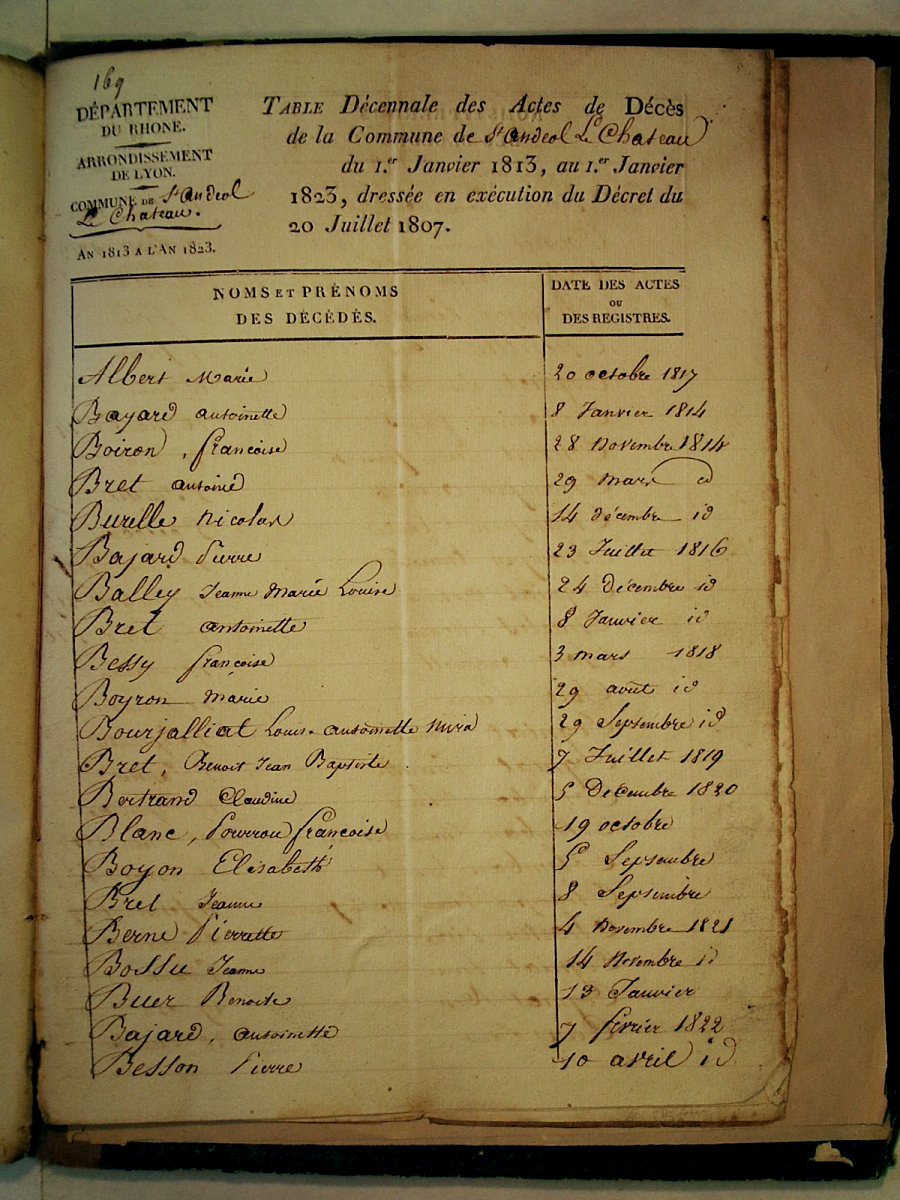 169
DÉPARTEMENT
DU RHONE.
ARRONDISSEMENT
DE LYON.
COMMUNE DE St Andeol
Le Chateau.
AN 1813 A L'AN 1823.
TABLE Décennale des Actes de Décès
de la Commune de St Andeol Le Chateau
du 1.er Janvier 1813, au 1.er Janvier
1823, dressée en exécution du Décret du
20 Juillet 1807.
NOMS ET PRÉNOMS
DES DÉCÉDÉS.
DATE DES ACTES
OU
DES REGISTRES.
Albert Marie 20 octobre 1817
Bayard antoinette 8 Janvier 1814
Boiron, francoise 28 Novembre 1814
Bret antoine 29 mars id
Burelle Nicolas 14 décembre id
Bajard Pierre 23 Juillet 1816
Balley Jeanne Marie Louise 24 Décembre id
Bret antoinette 8 Janvier id
Bessy françoise 3 mars 1818
Boyron Marie 29 août id
Bourjalliat Louise antoinette 29 Septembre id
Bret, Benoit Jean Baptiste 7 Juillet 1819
Bertrand Claudine 5 Decembre 1820
Blanc, françoise 19 octobre
Boyon Elisabeth 5 Septembre
Bret Jeanne 8 Septembre
Berne Pierrette 4 Novembre 1821
Bossu Jeanne 14 Novembre id
Buer Benoite 13 Janvier
Bajard, antoinette 7 fevrier 1822
Besson Pierre 10 avril id